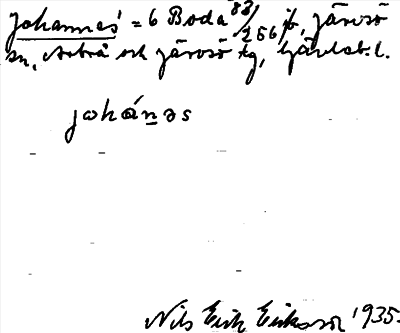 Johannes = 6 Boda 83/256 ib, Järvsö
sn, Arbrå och Järvsö tg, Gävleb. l.
johánəs
Nils Erik Eriksson 1935.